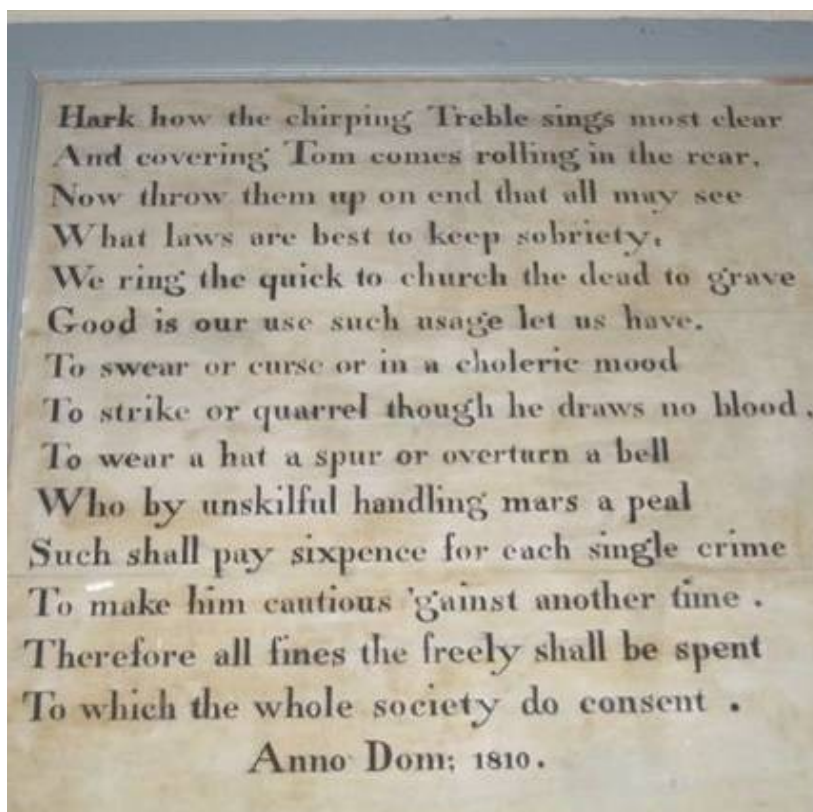 Hark how the chirping Treble sings most clear
And covering Tom comes rolling in the rear.
Now throw them up on end that all may see
What laws are best to keep sobriety.
We ring the quick to church the dead to grave
Good is our use such usage let us have.
To swear or curse or in a choleric mood
To strike or quarrel though he draws no blood.
To wear a hat a spur or overturn a bell
Who by unskilful handling mars a peal
Such shall pay sixpence for each single crime
To make him cautious 'gainst another time .
Therefore all fines the freely shall be spent
To which the whole society do consent .
Anno Dom; 1810.